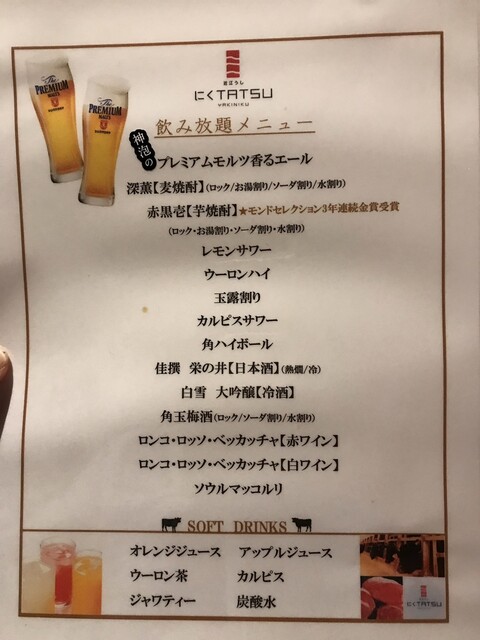 The
PREMIUM
MALT'S
The
PREMIUM
MALT'S
近江うし
にくTATSU
YAKINIKU
飲み放題メニュー
神泡の
プレミアムモルツ香るエール
深薫【麦焼酎】(ロック/お湯割り/ソーダ割り/水割り)
赤黒壱【芋焼酎】★モンドセレクション3年連続金賞受賞
(ロック・お湯割り・ソーダ割り・水割り)
レモンサワー
ウーロンハイ
玉露割り
カルピスサワー
角ハイボール
佳撰 栄の井【日本酒】(熱燗/冷)
白雪 大吟醸【冷酒】
角玉梅酒(ロック/ソーダ割り/水割り)
ロンコ・ロッソ・ベッカッチャ【赤ワイン】
ロンコ・ロッソ・ベッカッチャ【白ワイン】
ソウルマッコルリ
SOFT DRINKS
オレンジジュース アップルジュース
ウーロン茶 カルピス
ジャワティー 炭酸水
にくTATSU